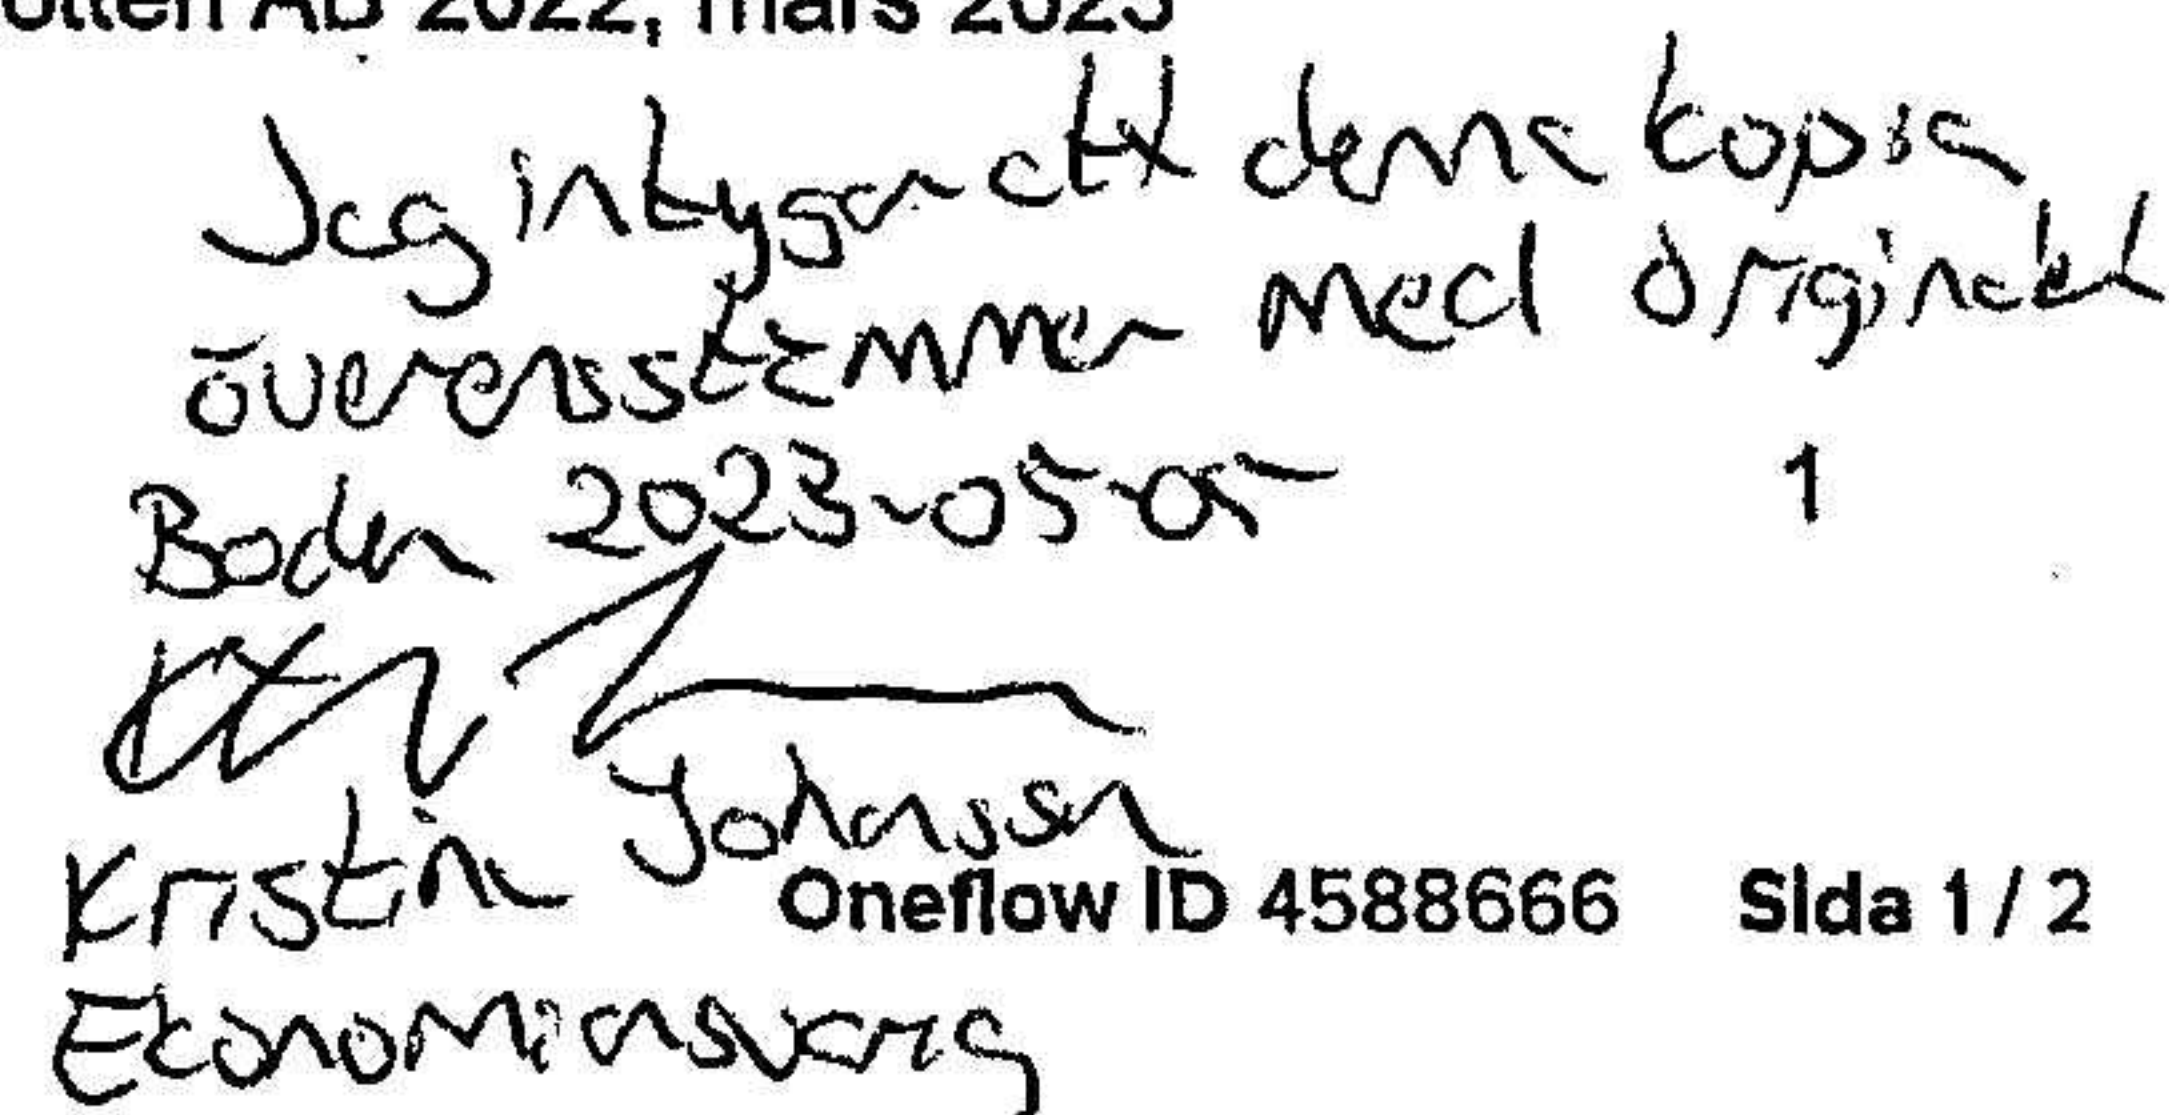 AB 2022, mars 2023
Jag intygar att denna kopia
överensstämmer med originalet
Boden 2023-05-05
1
Kristina Johansson
Oneflow ID 4588666 Sida 1 / 2
Ekonomiansvarig